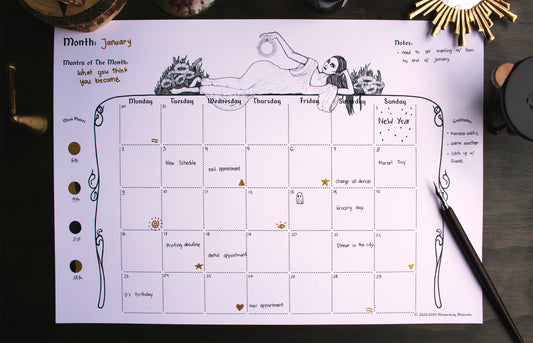 Month: January
Mantra of The Month:
What you think
you become.
Notes:
• need to set meeting w/ Sam
by end of January
Monday Tuesday Wednesday Thursday Friday Saturday Sunday
30 31 1
New Year
Moon Phases
Gratitudes
• morning walks
• warm weather
• catch up w/
friends
6th
2 3 4 5 6 7 8
New Schedule
nail appointment
Change all devices
Market Day
15th
9 10 11 12 13 14 15
Grocery day
21st
16 17 18 19 20 21 22
Printing deadline
dental appointment
Dinner in the city
28th
23 24 25 26 27 28 29
D's Birthday
Hair appointment